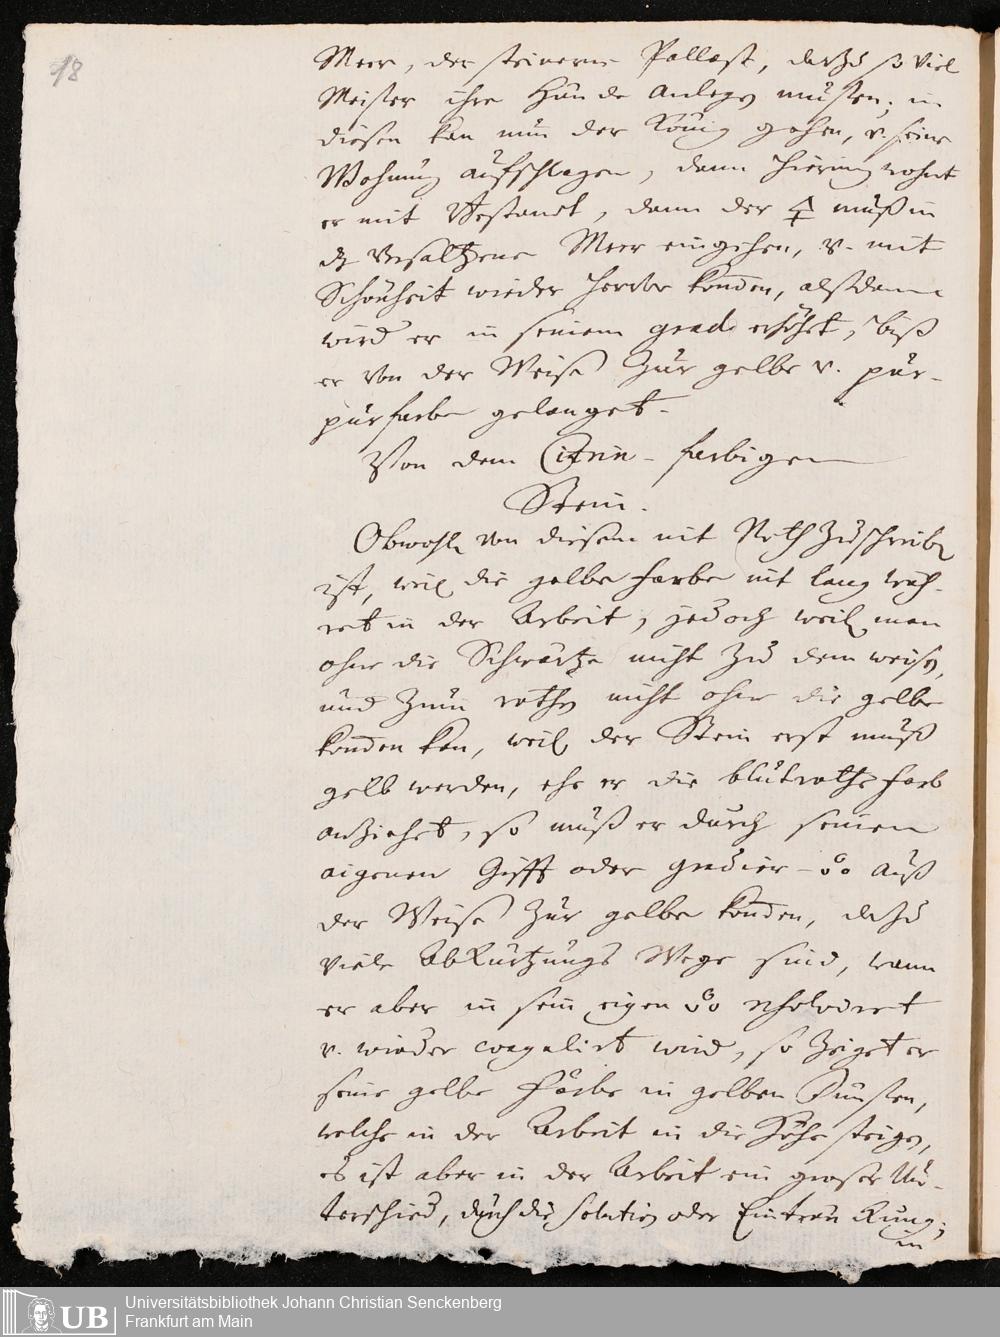 18
Meer, der steinerne Pallast, darzu so viel
Meister ihre Hände anlegen müsten, in
diesen kan nun der König gehen, v. seine
Wohnung aufschlagen, dann hierin wohnt
er mit Bestandt, dann der 🜍 muß in
dz versaltzene Meer eingehen, v. mit
Schönheit wieder herbe kom̄en, alßdann
wird er in seinem grad erhöhet, biß
er von der Weise zur gelbe v. pur-
purfarbe gelanget.
Von dem Citrin-farbigen
Stein.
Obwohl von diesem nit Noth zu schreiben
ist, weil die gelbe farbe nit lang wäh-
ret in der Arbeit, jedoch weil man
ohne die Schwartze nicht zu dem weisen,
und zum rothen nicht ohne die gelbe
kom̄en kan, weil der Stein erst muß
gelb werden, ehe er die blutrothe farb
anziehet, so muß er durch seinen
aigenen Gifft oder gradier- auß
der Weise zur gelbe kom̄en, dazu
viele Abkürtzungs Wege sind, wann
er aber in sein eigen resolviret
v. wieder coagulirt wird, so zeiget er
seine gelbe färbe in gelben Dünsten,
welche in der Arbeit in die Höhe steigen,
es ist aber in der Arbeit ein groser Un-
terschied, durch die solution oder Eintränkung,
in
UB Universitätsbibliothek Johann Christian Senckenberg
Frankfurt am Main